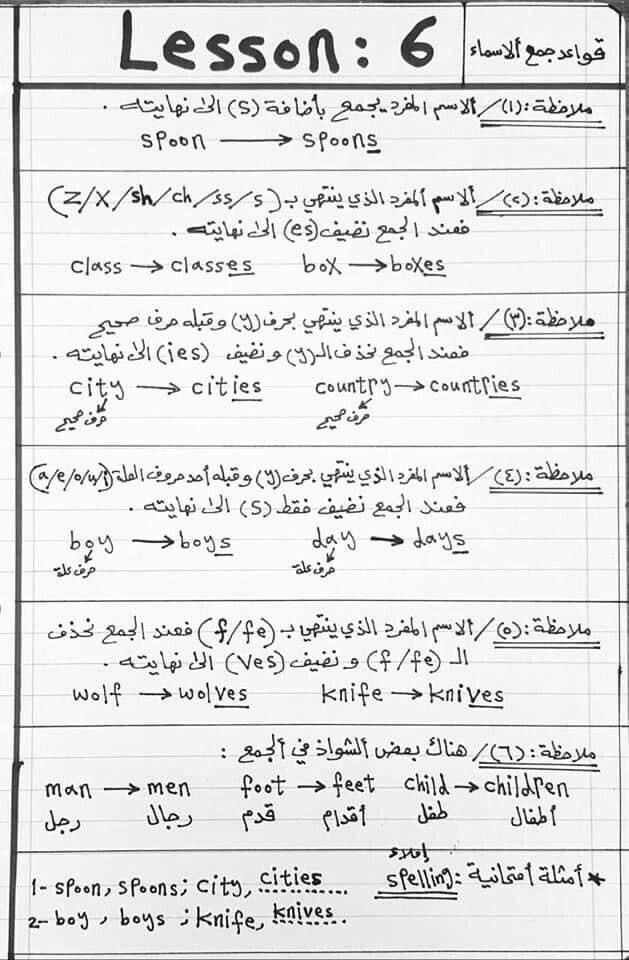 Lesson: 6
قواعد جمع ألاسماء
ملاحظة: (١)/ ألاسم المفرد يجمع بأضافة (S) الى نهايته .
spoon → spoons
ملاحظة: (٢)/ ألاسم ألمفرد الذي ينتهي بـ (Z/X/sh/ch/ss/s)
فعند الجمع نضيف (es) الى نهايته .
class → classes box → boxes
ملاحظة: (٣)/ ألاسم المفرد الذي ينتهي بحرف (y) وقبله حرف صحيح
فعند الجمع نحذف الـ (y) و نضيف (ies) الى نهايته .
city → cities country → countries
حرف صحيح حرف صحيح
ملاحظة: (٤)/ ألاسم المفرد الذي ينتهي بحرف (y) وقبله أحد حروف العلة (a/e/o/u/i)
فعند الجمع نضيف فقط (S) الى نهايته .
boy → boys day → days
حرف علة حرف علة
ملاحظة: (٥)/ ألاسم المفرد الذي ينتهي بـ (f/fe) فعند الجمع نحذف
الـ (f/fe) و نضيف (ves) الى نهايته .
wolf → wolves knife → knives
ملاحظة: (٦)/ هناك بعض الشواذ في ألجمع :
man → men foot → feet child → children
رجل رجال قدم أقدام طفل أطفال
إملاء
* أمثلة أمتحانية : spelling
1- spoon, spoons; city, cities
2- boy, boys; knife, knives.